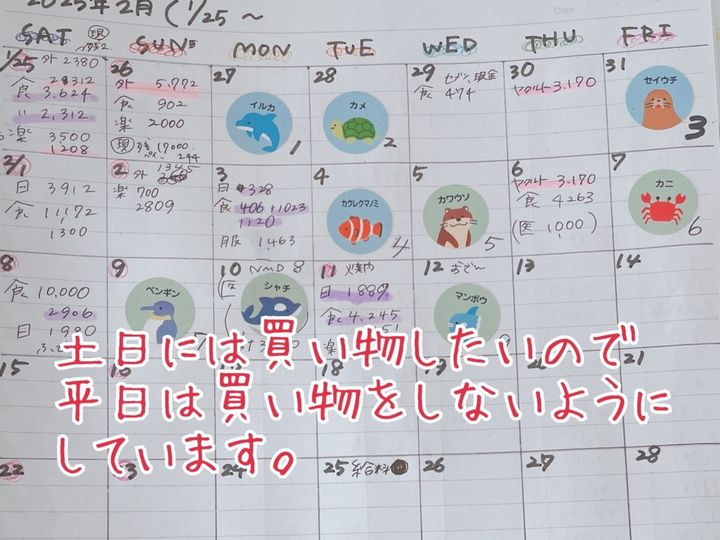 2025年2月 (1/25 ~
SAT SUN MON TUE WED THU FRI
1/25 外 2380
食 3,624
〃 2,312
楽 3500
1208
26
外 5,772
食 902
楽 2000
現 残 17000
27
イルカ
1
28
カメ
2
29
食 474
30
ヤクルト 3,170
31
セイウチ
3
2/1
日 3912
食 11,172
1300
2 外
楽 700
2809
3
日 328
食 406 + 1023
1120
服 1463
4
カクレクマノミ
4
5
カワウソ
5
6
ヤクルト 3,170
食 4263
(医 1000)
7
カニ
6
8
食 10,000
2906
日 1980
9
ペンギン
10
シャチ
11
日 1889
食 4,245
12 おでん
マンボウ
13
14
土日には買い物したいので
平日は買い物をしないように
しています。
15
18
21
22
24
25 給料
26
27
28